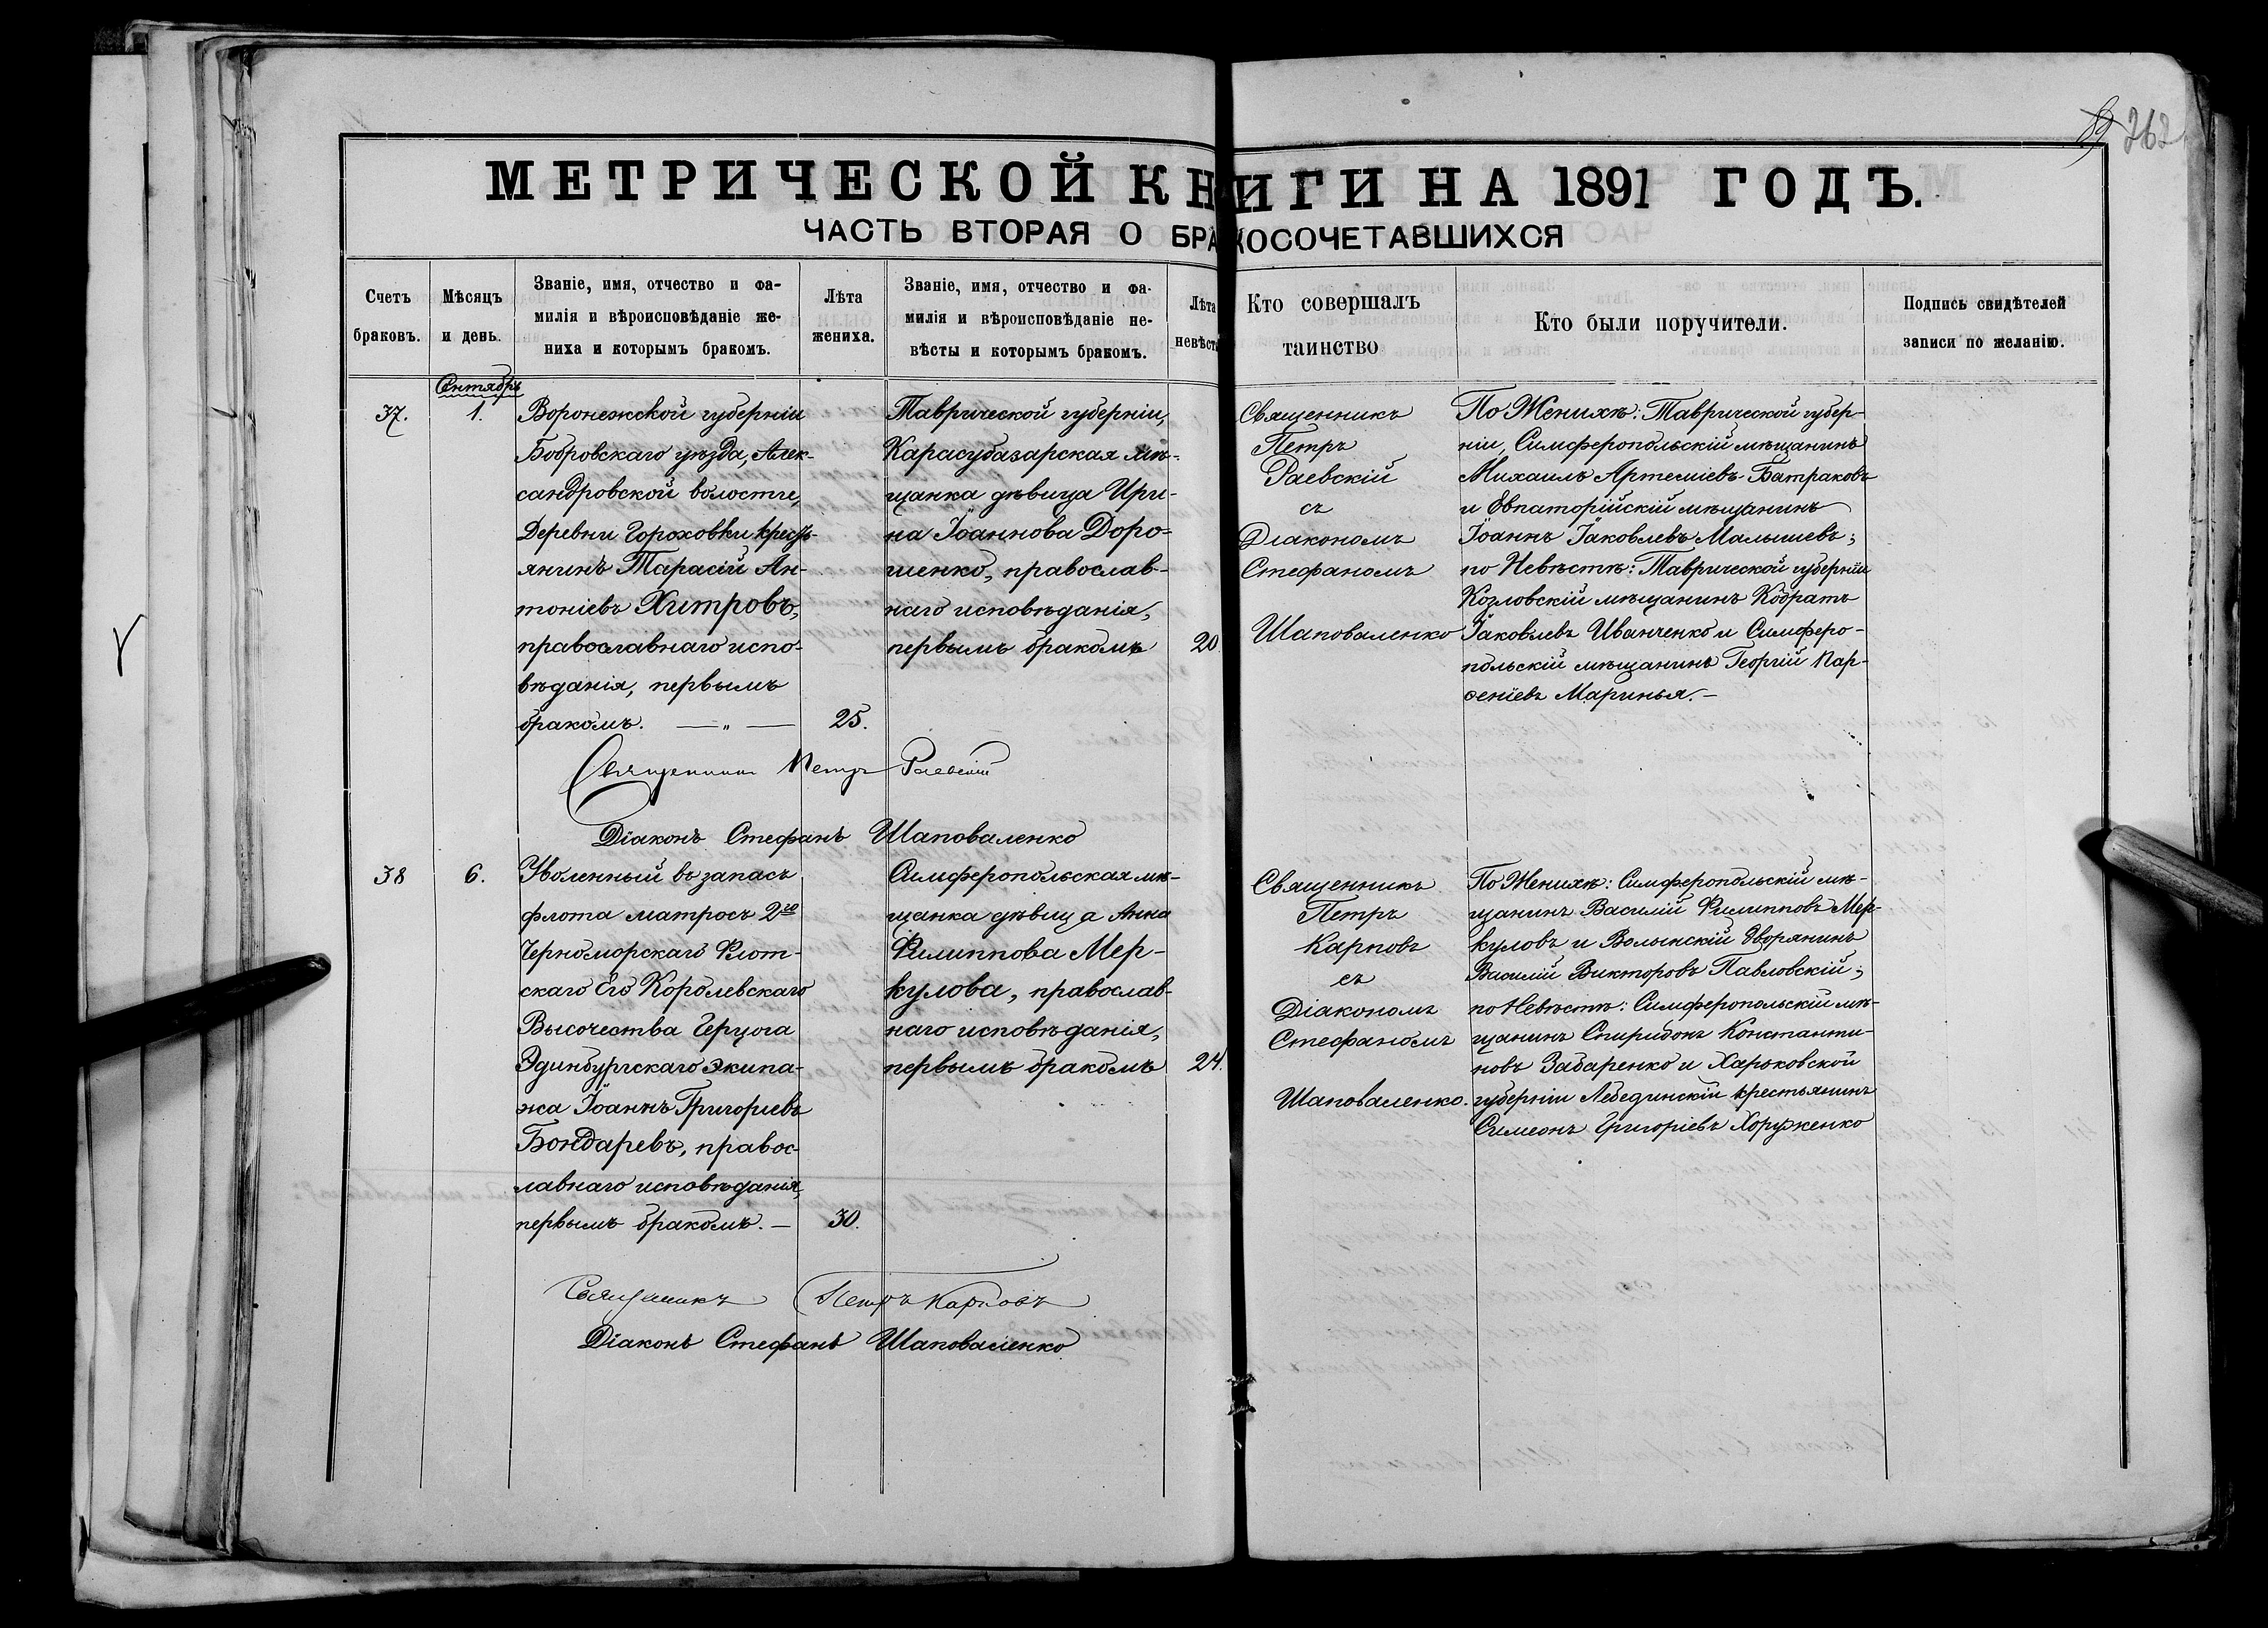 89 262
МЕТРИЧЕСКОЙ КНИГИ НА 1891 ГОДЪ.
ЧАСТЬ ВТОРАЯ О БРАКОСОЧЕТАВШИХСЯ
Счетъ
браковъ.
Мѣсяцъ
и день.
Званіе, имя, отчество и фа-
милія и вѣроисповѣданіе же-
ниха и которымъ бракомъ.
Лѣта
жениха.
Званіе, имя, отчество и фа-
милія и вѣроисповѣданіе не-
вѣсты и которымъ бракомъ.
Лѣта
невѣсты
Кто совершалъ
таинство
Кто были поручители.
Подпись свидѣтелей
записи по желанію.
Сентябрь
37.
1.
Воронежской губерніи
Бобровскаго уѣзда, Алек-
сандровской волости,
Деревни Гороховки кресть-
янинъ Тарасій Ан-
тоніевъ Хитровъ,
православнаго испо-
вѣданія, первымъ
бракомъ. — „ —
25.
Таврической губерніи,
Карасубазарская мѣ-
щанка дѣвица Ири-
на Іоаннова Доро-
шенко, православ-
наго исповѣданія,
первымъ бракомъ
20.
Священникъ
Петръ
Раевскій
съ
Діакономъ
Стефаномъ
Шаповаленко
По Женихѣ: Таврической губер-
ніи, Симферопольскій мѣщанинъ
Михаилъ Артеміевъ Батраковъ
и Евпаторійскій мѣщанинъ
Іоаннъ Іаковлевъ Малышевъ;
по Невѣстѣ: Таврической губерніи
Козловскій мѣщанинъ Кодратъ
Іаковлевъ Иванченко и Симферо-
польскій мѣщанинъ Георгій Пар-
ѳеніевъ Маринья. —
Священникъ Петръ Раевскій
Діаконъ Стефанъ Шаповаленко
38
6.
Уволенный въ запасъ
флота матросъ 2го
Черноморскаго Флот-
скаго Его Королевскаго
Высочества Герцога
Эдинбургскаго экипа-
жа Іоаннъ Григоріевъ
Бондаревъ, правос-
лавнаго исповѣданія,
первымъ бракомъ. —
30.
Симферопольская мѣ-
щанка дѣвица Анна
Филиппова Мер-
кулова, православ-
наго исповѣданія,
первымъ бракомъ
24.
Священникъ
Петръ
Карповъ
съ
Діакономъ
Стефаномъ
Шаповаленко.
По Женихѣ: Симферопольскій мѣ-
щанинъ Василій Филипповъ Мер-
куловъ и Волынскій дворянинъ
Василій Викторовъ Павловскій;
по Невѣстѣ: Симферопольскій мѣ-
щанинъ Спиридонъ Константи-
новъ Забаренко и Харьковской
губерніи Лебединскій крестьянинъ
Симеонъ Григоріевъ Хоруженко
Священникъ Петръ Карповъ
Діаконъ Стефанъ Шаповаленко